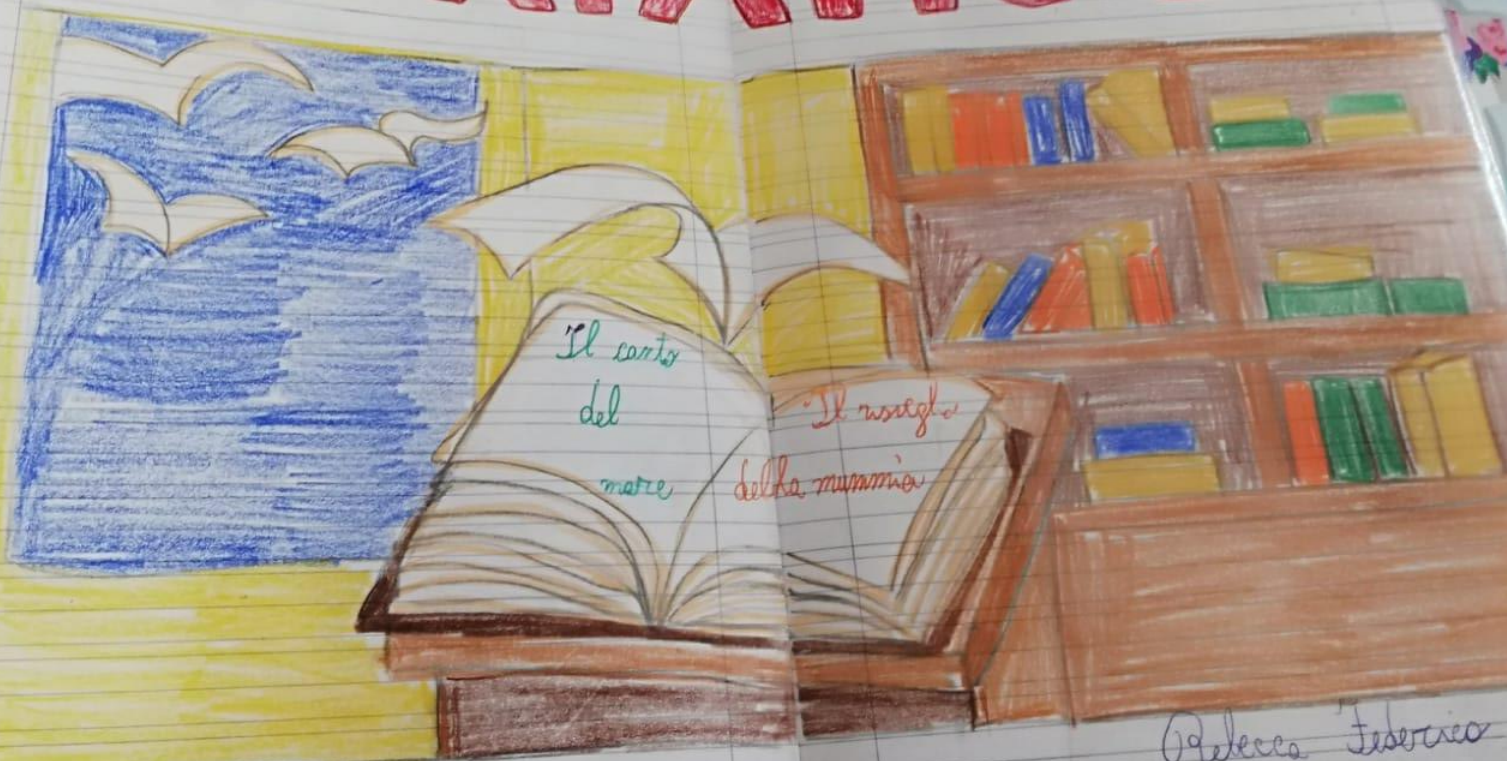 Il canto
del
mare
Il risveglio
della mummia
Rebecca Federico